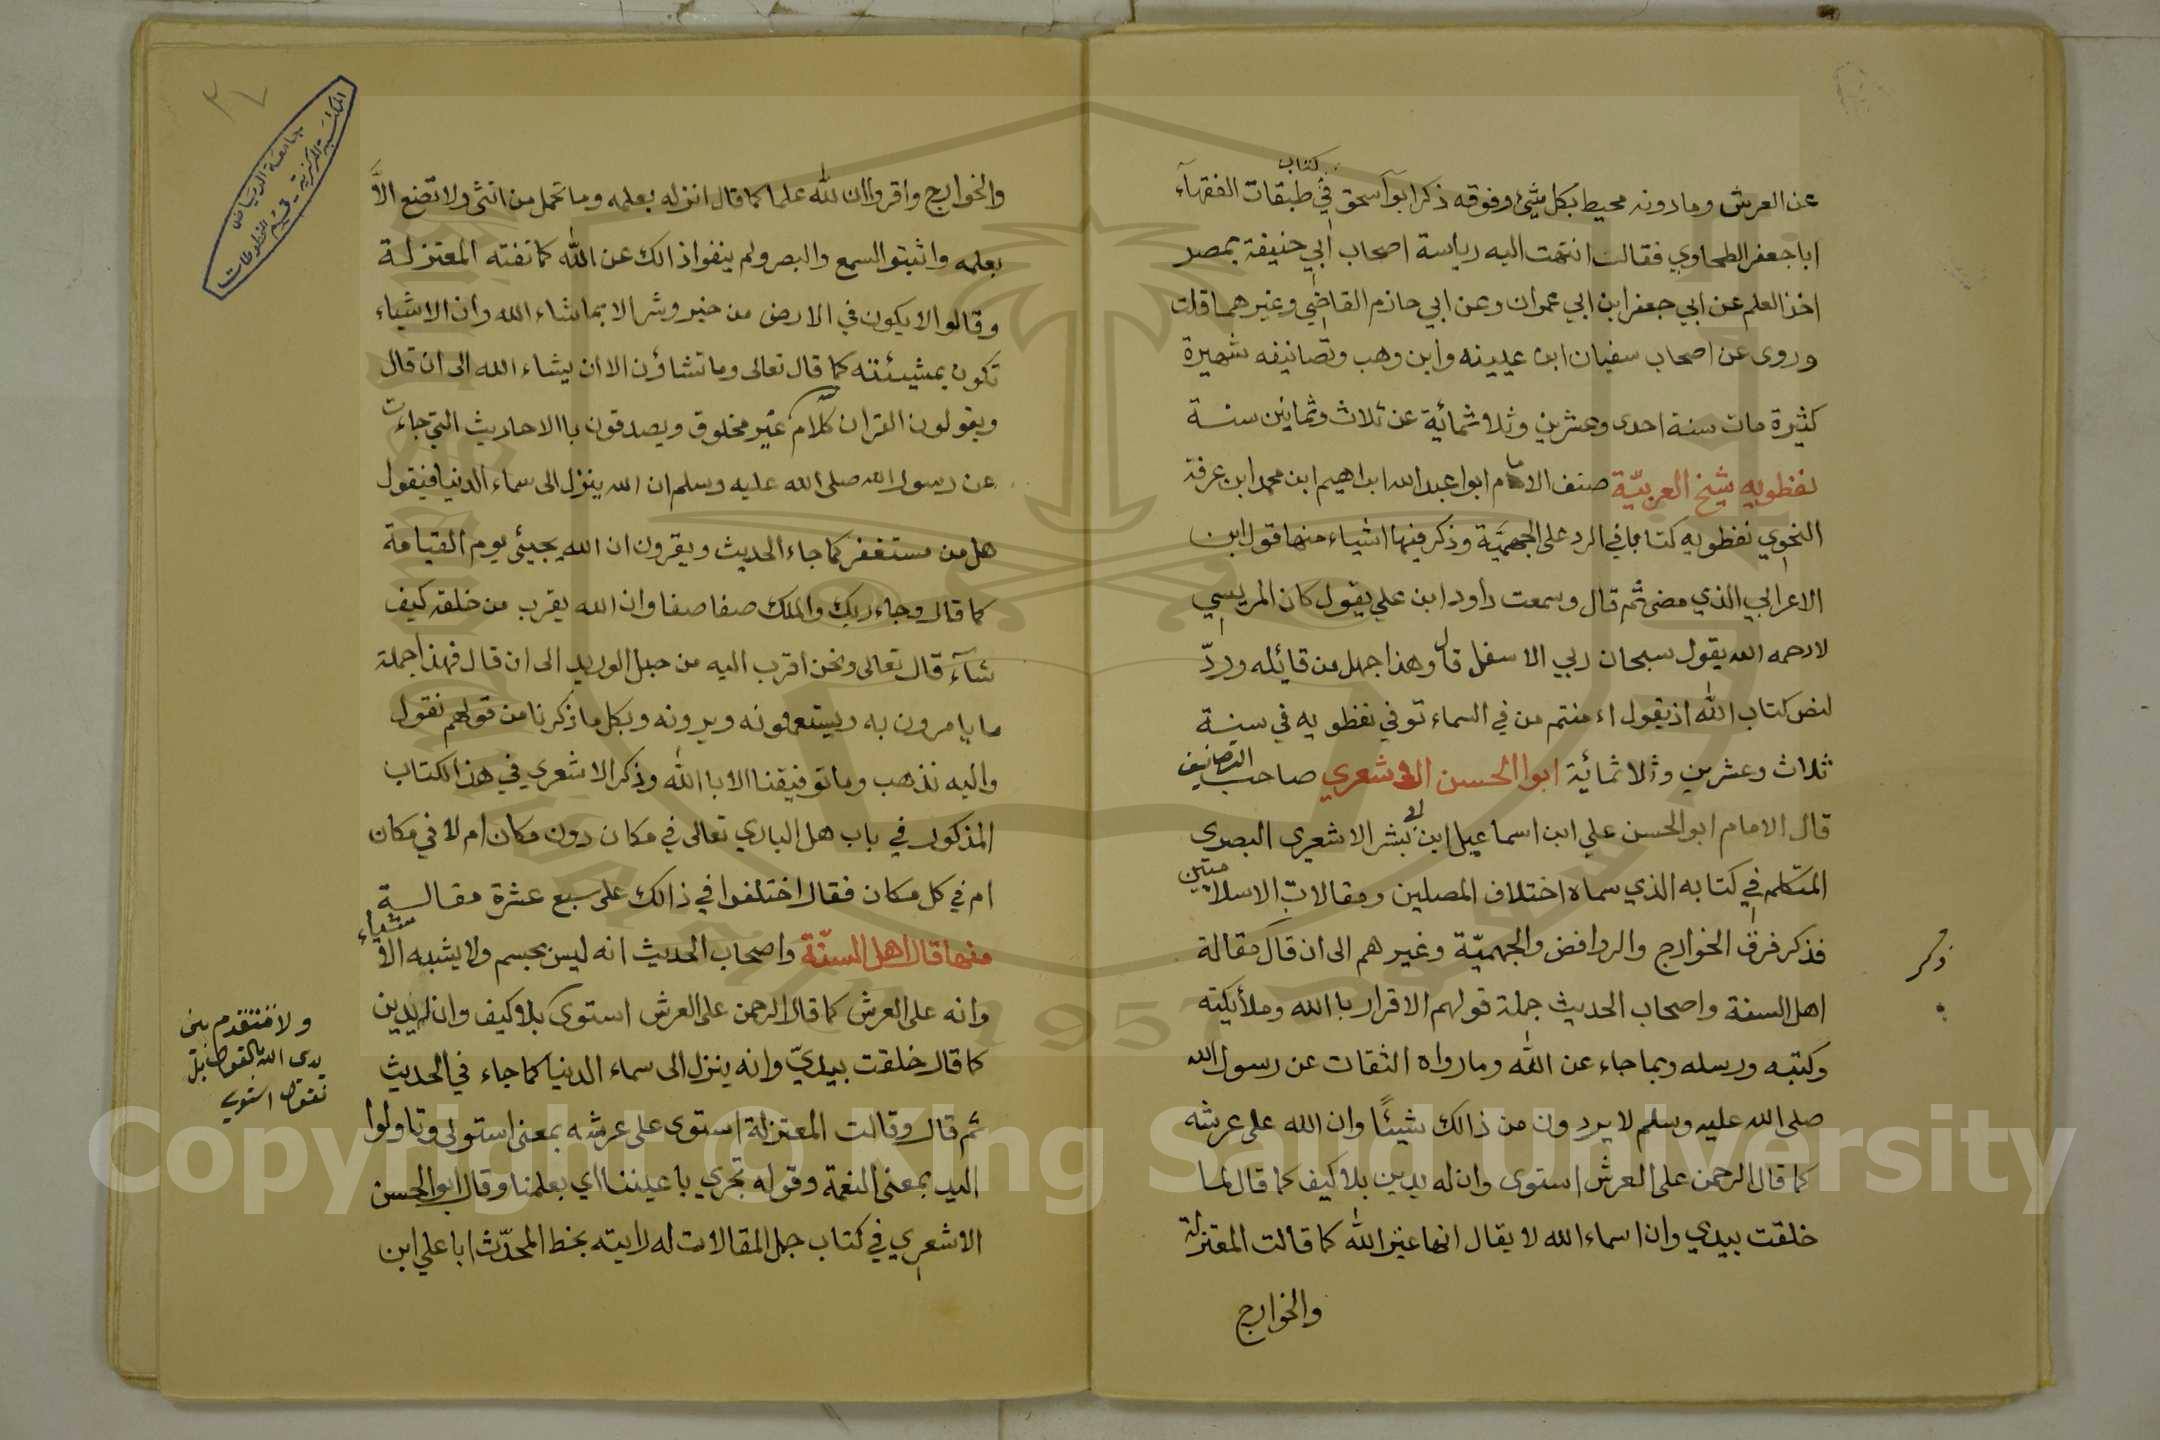 كتاب
عن العرش وما دونه محيط بكل شيئ وفوقه ذكر ابو اسحق في طبقات الفقهآء
ابا جعفر الطحاوي فقالت انتهت اليه رياسة اصحاب ابي حنيفة بمصر
اخذ العلم عن ابي جعفر ابن ابي عمران وعن ابي حازم القاضي وغيرهما قلت
وروى عن اصحاب سفيان ابن عيينه وابن وهب وتصانيفه شهيرة
كثيرة مات سنة احدى وعشرين وثلاثمائية عن ثلاث وثمانين سنة
نفطويه شيخ العربيّة صنف الامام ابوا عبد الله ابراهيم ابن محمد ابن عرفة
النحوي نفطويه كتابا في الرد على الجهميّة وذكر فيها اشياء منها قول ابن
الاعرابي الذي مضى ثم قال وسمعت داود ابن علي يقول كان المريسي
لا رحمه الله يقول سبحان ربي الاسفل قال وهذا جهل من قائله وردّ
لنص كتاب الله اذ يقول اءمنتم من في السماء توفي نفطويه في سنة
ثلاث وعشرين وثلاثمائية ابوا الحسن الاشعري صاحب التصانيف
قال الامام ابو الحسن علي ابن اسماعيل ابن بشر الاشعري البصري
المتكلم في كتابه الذي سماه اختلاف المصلين ومقالات الاسلاميين
فذكر فرق الخوارج والروافض والجهميّة وغيرهم الى ان قال مقالة
ذكر
اهل السنة واصحاب الحديث جملة قولهم الاقرار باالله وملأيكته
وكتبه ورسله وبما جاء عن الله وما رواه الثقات عن رسول الله
صلى الله عليه وسلم لا يردون من ذالك شيئًا وان الله على عرشه
كما قال الرحمن على العرش استوى وان له يدين بلا كيف كما قال لما
خلقت بيدي وان اسماء الله لا يقال انها غير الله كما قالت المعتزلة
والخوارج
٣٧
جامعة الرياض
المكتبة المركزية قسم المخطوطات
والخوارج واقروا ان لله علما كما قال انزله بعلمه وما تحمل من انثى ولا تضع الاّ
بعلمه واثبتو السمع والبصر ولم ينفوا ذالك عن الله كما نفته المعتزلة
وقالوا لا يكون في الارض من خير وشر الا بما شاء الله وان الاشياء
تكون بمشيئته كما قال تعالى وما تشاؤن الا ان يشاء الله الى ان قال
ويقولون القران كلام غير مخلوق ويصدقون باالاحاديث التي جاءت
عن رسول الله صلى الله عليه وسلم ان الله ينزل الى سماء الدنيا فيقول
هل من مستغفر كما جاء الحديث ويقرون ان الله يجيئ يوم القيامة
كما قال وجاء ربك والملك صفا صفا وان الله يقرب من خلقه كيف
شآء قال تعالى ونحن اقرب اليه من حبل الوريد الى ان قال فهذا جملة
ما يامرون به ويستعملونه ويرونه وبكل ما ذكرنا من قولهم نقول
واليه نذهب وما توفيقنا الا باالله وذكر الاشعري في هذا الكتاب
المذكور في باب هل الباري تعالى في مكان دون مكان ام لا في مكان
ام في كل مكان فقال اختلفوا في ذالك على سبع عشرة مقالة
منها قال اهل السنّة واصحاب الحديث انه ليس بجسم ولا يشبه الاشياء
وانه على العرش كما قال الرحمن على العرش استوى بلا كيف وان له يدين
كما قال خلقت بيديّ وانه ينزل الى سماء الدنيا كما جاء في الحديث
ثم قال وقالت المعتزلة استوى على عرشه بمعنى استولى وتاولوا
اليد بمعنى النعمة وقوله تجري باعيننا اي بعلمنا وقال ابو الحسن
الاشعري في كتاب جمل المقالات له رايته بخط المحدّث ابا علي ابن
ولا نتقدم بين
يدى الله بالقول بل
نقول استوى
Copyright © King Saud University
1957